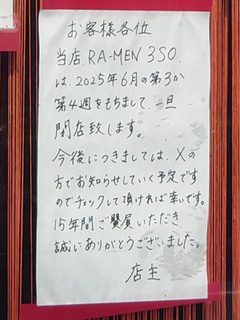 お客様各位
当店 RA-MEN 3SO
は、2025年6月の第3か
第4週をもちまして、一旦
閉店致します。
今後につきましては、Xの
方でお知らせしていく予定です
のでチェックして頂ければ幸いです。
15年間ご贔屓いただき
誠にありがとうございました。
店主